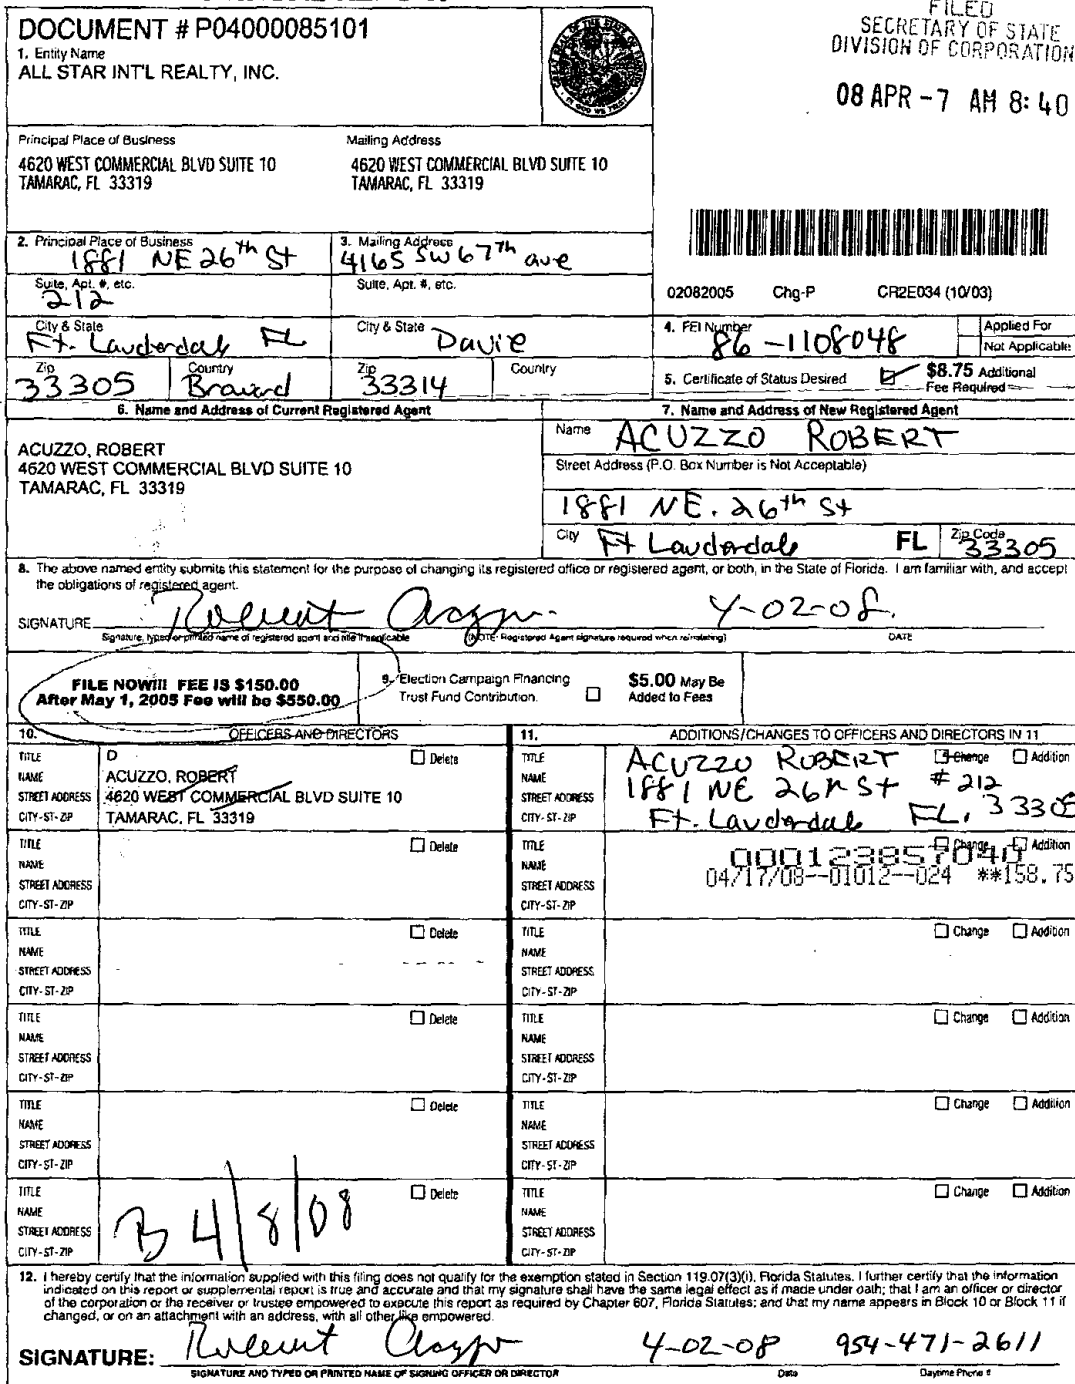 DOCUMENT # P04000085101
1. Entity Name
ALL STAR INT'L REALTY, INC.
FILED
SECRETARY OF STATE
DIVISION OF CORPORATION
08 APR -7 AM 8:40
Principal Place of Business
4620 WEST COMMERCIAL BLVD SUITE 10
TAMARAC, FL 33319
Mailing Address
4620 WEST COMMERCIAL BLVD SUITE 10
TAMARAC, FL 33319
2. Principal Place of Business
1881 NE 26th St
3. Mailing Address
4165 SW 67th ave
Suite, Apt. #, etc.
212
Suite, Apt. #, etc.
City & State
Ft. Lauderdale FL
City & State
Davie
Zip
33305
Country
Zip
33314
Country
02082005 Chg-P CR2E034 (10/03)
4. FEI Number
86-1108048
Applied For
Not Applicable
5. Certificate of Status Desired
$8.75 Additional
Fee Required
6. Name and Address of Current Registered Agent
ACUZZO, ROBERT
4620 WEST COMMERCIAL BLVD SUITE 10
TAMARAC, FL 33319
7. Name and Address of New Registered Agent
Name ACUZZO ROBERT
Street Address (P.O. Box Number is Not Acceptable)
1881 NE. 26th St
City Ft Lauderdale FL Zip Code 33305
8. The above named entity submits this statement for the purpose of changing its registered office or registered agent, or both, in the State of Florida. I am familiar with, and accept
the obligations of registered agent.
SIGNATURE 4-02-08.
Signature, typed or printed name of registered agent and title if applicable (NOTE: Registered Agent signature required when reinstating) DATE
FILE NOW!!! FEE IS $150.00
After May 1, 2005 Fee will be $550.00
9. Election Campaign Financing
Trust Fund Contribution.
$5.00 May Be
Added to Fees
10. OFFICERS AND DIRECTORS
TITLE D Delete
NAME ACUZZO, ROBERT
STREET ADDRESS 4620 WEST COMMERCIAL BLVD SUITE 10
CITY-ST-ZIP TAMARAC, FL 33319
TITLE Delete
NAME
STREET ADDRESS
CITY-ST-ZIP
TITLE Delete
NAME
STREET ADDRESS
CITY-ST-ZIP
TITLE Delete
NAME
STREET ADDRESS
CITY-ST-ZIP
TITLE Delete
NAME
STREET ADDRESS
CITY-ST-ZIP
TITLE Delete
NAME
STREET ADDRESS
CITY-ST-ZIP
B 4/8/08
11. ADDITIONS/CHANGES TO OFFICERS AND DIRECTORS IN 11
TITLE ACUZZO ROBERT Change Addition
NAME 1881 NE 26th St # 212
STREET ADDRESS
CITY-ST-ZIP Ft. Lauderdale FL, 33305
TITLE Change Addition
NAME 000123857040
STREET ADDRESS 04/17/08--01012--024 **158.75
CITY-ST-ZIP
TITLE Change Addition
NAME
STREET ADDRESS
CITY-ST-ZIP
TITLE Change Addition
NAME
STREET ADDRESS
CITY-ST-ZIP
TITLE Change Addition
NAME
STREET ADDRESS
CITY-ST-ZIP
TITLE Change Addition
NAME
STREET ADDRESS
CITY-ST-ZIP
12. I hereby certify that the information supplied with this filing does not qualify for the exemption stated in Section 119.07(3)(i), Florida Statutes. I further certify that the information
indicated on this report or supplemental report is true and accurate and that my signature shall have the same legal effect as if made under oath; that I am an officer or director
of the corporation or the receiver or trustee empowered to execute this report as required by Chapter 607, Florida Statutes; and that my name appears in Block 10 or Block 11 if
changed, or on an attachment with an address, with all other like empowered.
SIGNATURE: 4-02-08 954-471-2611
SIGNATURE AND TYPED OR PRINTED NAME OF SIGNING OFFICER OR DIRECTOR Date Daytime Phone #